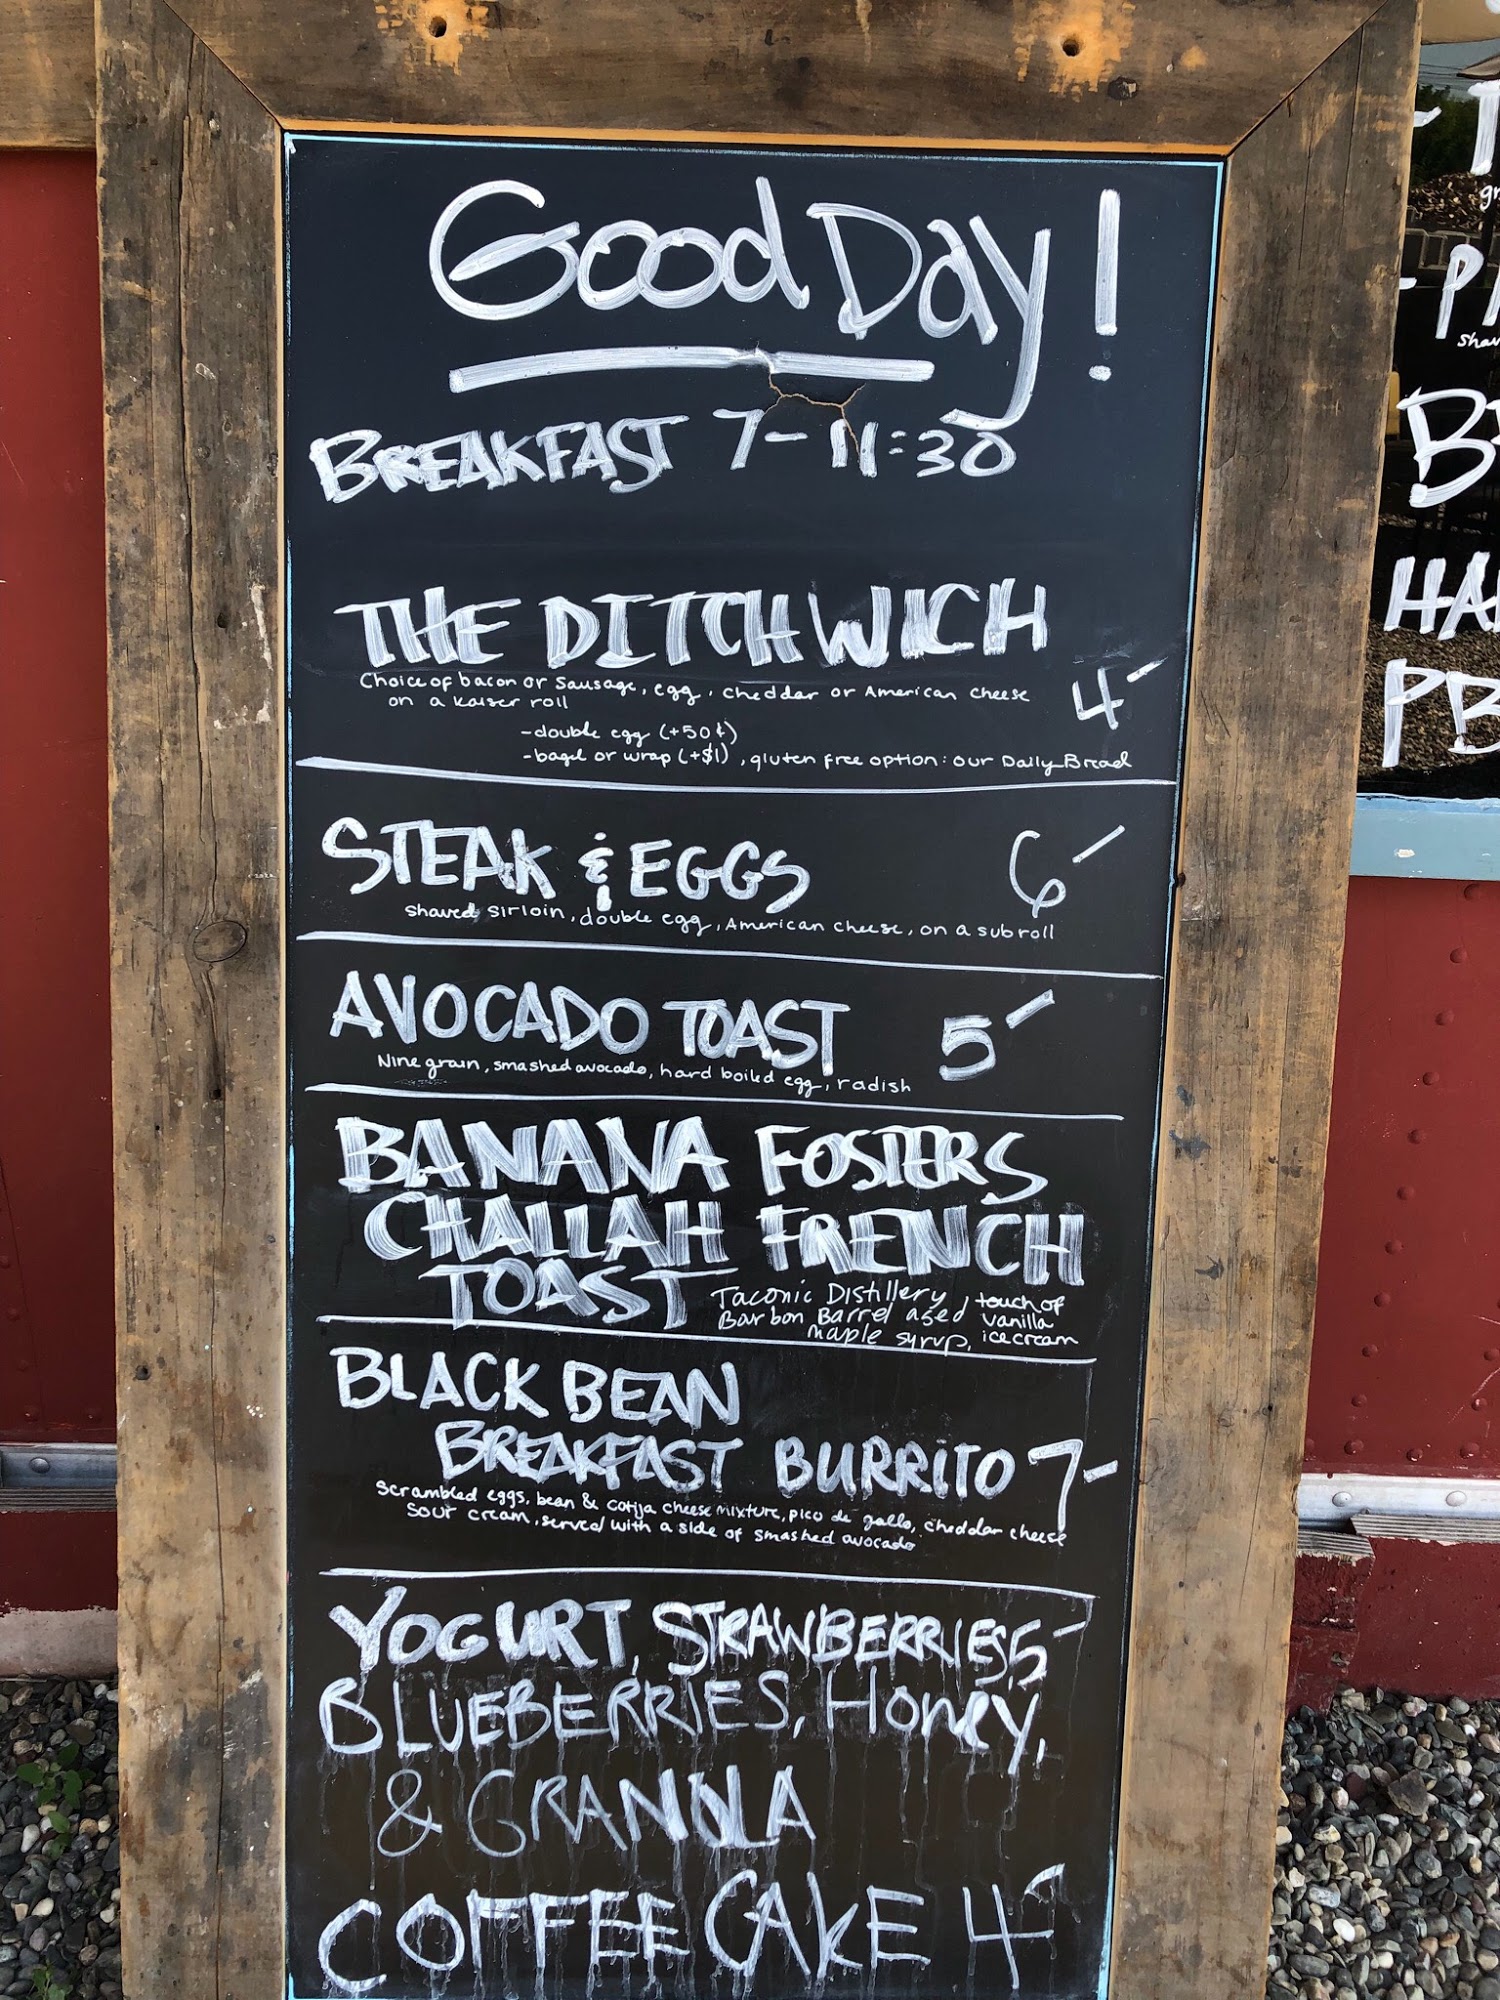 Good Day!
BREAKFAST 7-11:30
THE DITCHWICH
Choice of bacon or sausage, egg, cheddar or American cheese
on a kaiser roll
4-
-double egg (+50¢)
-bagel or wrap (+$1), gluten free option: our Daily Bread
STEAK & EGGS 6-
shaved sirloin, double egg, American cheese, on a sub roll
AVOCADO TOAST 5-
Nine grain, smashed avocado, hard boiled egg, radish
BANANA FOSTERS
CHALLAH FRENCH
TOAST
Taconic Distillery
Barbon Barrel aged
maple syrup,
touch of
vanilla
ice cream
BLACK BEAN
BREAKFAST BURRITO 7-
Scrambled eggs, bean & cotija cheese mixture, pico de gallo, cheddar cheese
sour cream, served with a side of smashed avocado
YOGURT, STRAWBERRIES 5-
BLUEBERRIES, Honey,
& GRANOLA
COFFEE CAKE 4-
gr
-P
shav
B
HA
PB